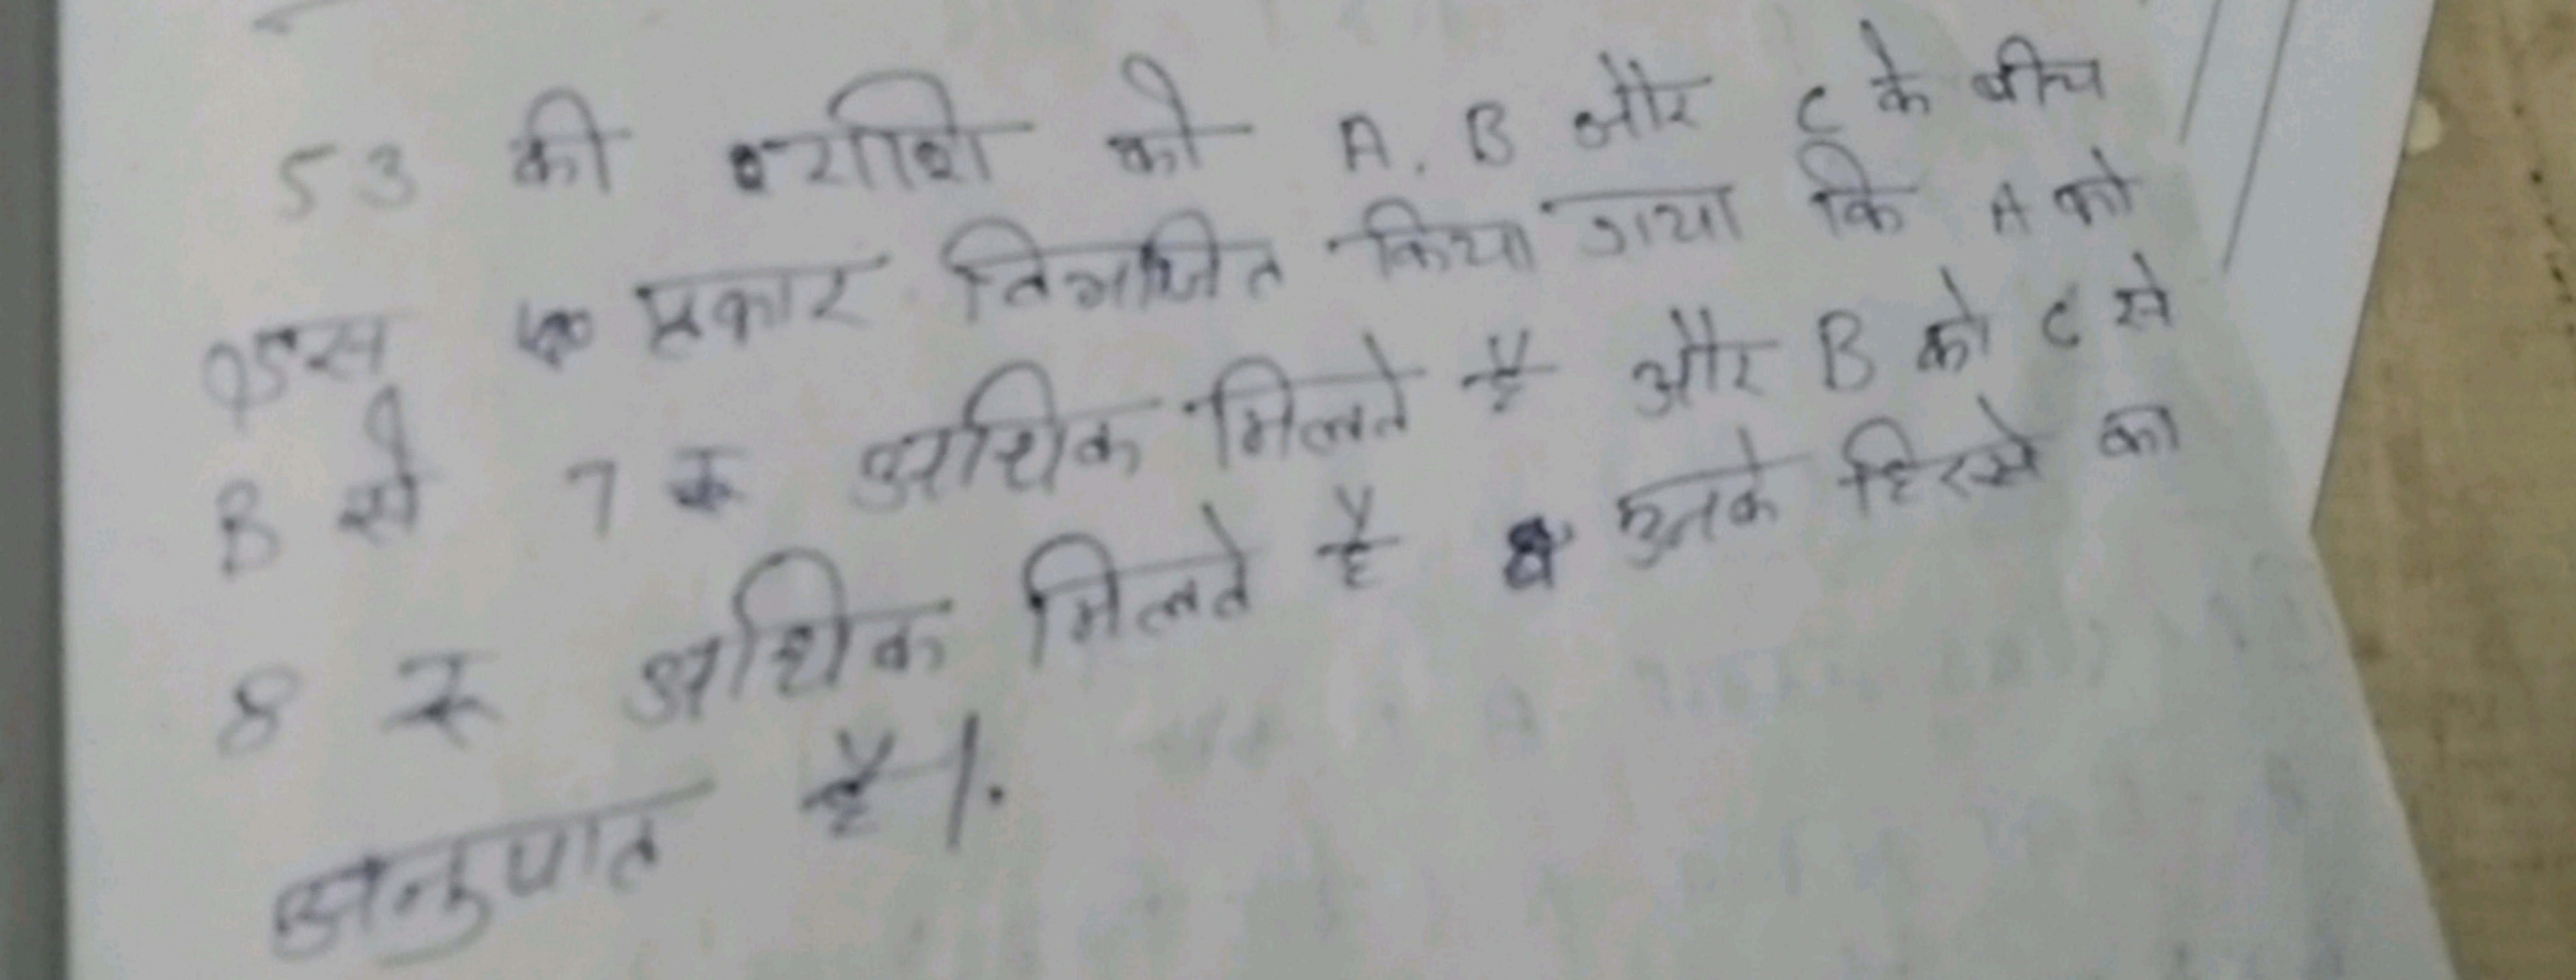 53 की राशि को A, B और C के बीच
इस प्रकार विभाजित किया गया कि A को
B से 7 रू अधिक मिलते है और B को C से
8 रू अधिक मिलते है उनके हिस्से का
अनुपात है।.